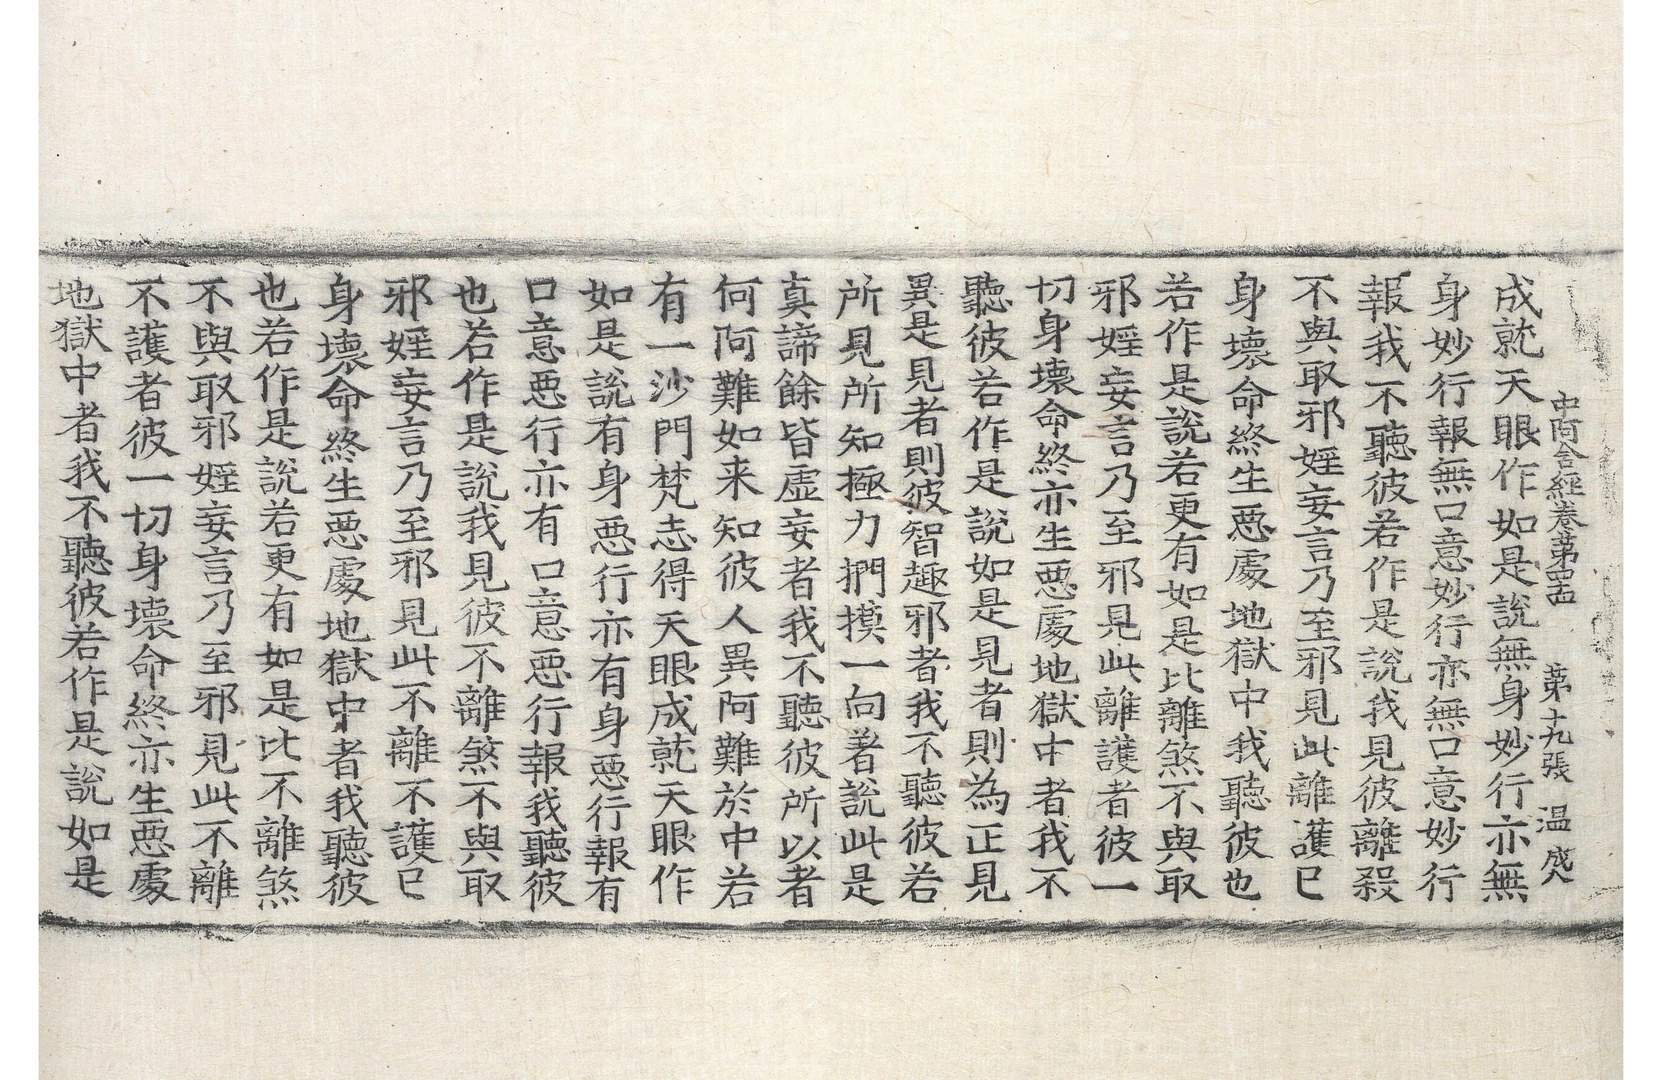 中阿含經卷第四十四 第十九張 温成
成就天眼作如是說無身妙行亦無
身妙行報無口意妙行亦無口意妙行
報我不聽彼若作是說我見彼離殺
不與取邪婬妄言乃至邪見此離護已
身壞命終生惡處地獄中我聽彼也
若作是說若更有如是比離煞不與取
邪婬妄言乃至邪見此離護者彼一
切身壞命終亦生惡處地獄中者我不
聽彼若作是說如是見者則為正見
異是見者則彼智趣邪者我不聽彼若
所見所知極力捫摸一向著說此是
真諦餘皆虛妄者我不聽彼所以者
何阿難如来知彼人異阿難於中若
有一沙門梵志得天眼成就天眼作
如是說有身惡行亦有身惡行報有
口意惡行亦有口意惡行報我聽彼
也若作是說我見彼不離煞不與取
邪婬妄言乃至邪見此不離不護已
身壞命終生惡處地獄中者我聽彼
也若作是說若更有如是比不離煞
不與取邪婬妄言乃至邪見此不離
不護者彼一切身壞命終亦生惡處
地獄中者我不聽彼若作是說如是